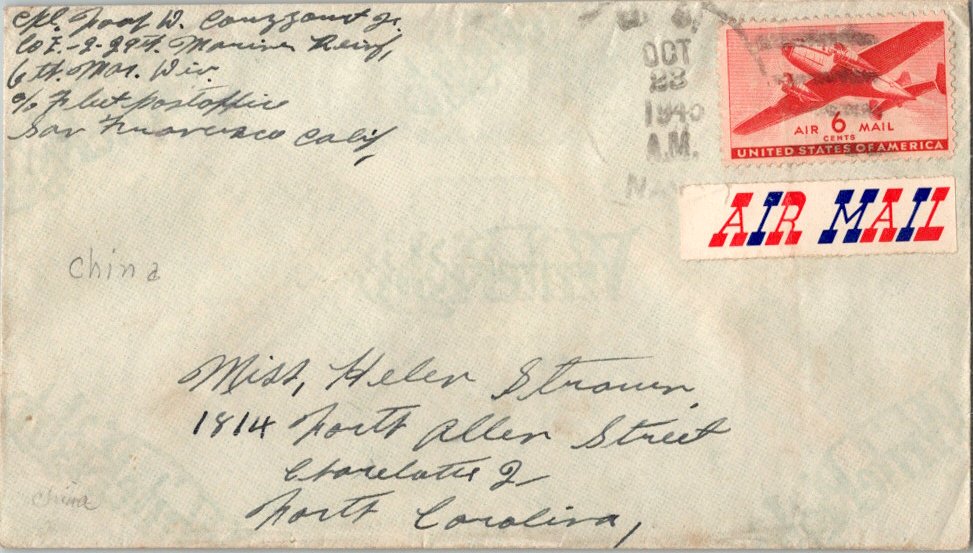 Cpl. W. Jr.
Co E.-2-29th. Marine Reinf,
6 th. Mar. Div.
c/o Fleet postoffice
San Francisco Calif,
OCT
1945
A.M.
AIR 6 MAIL
CENTS
UNITED STATES OF AMERICA
AIR MAIL
China
Miss, Helen
1814 North Allen Street
Charelotte 2
North Carolina,
China